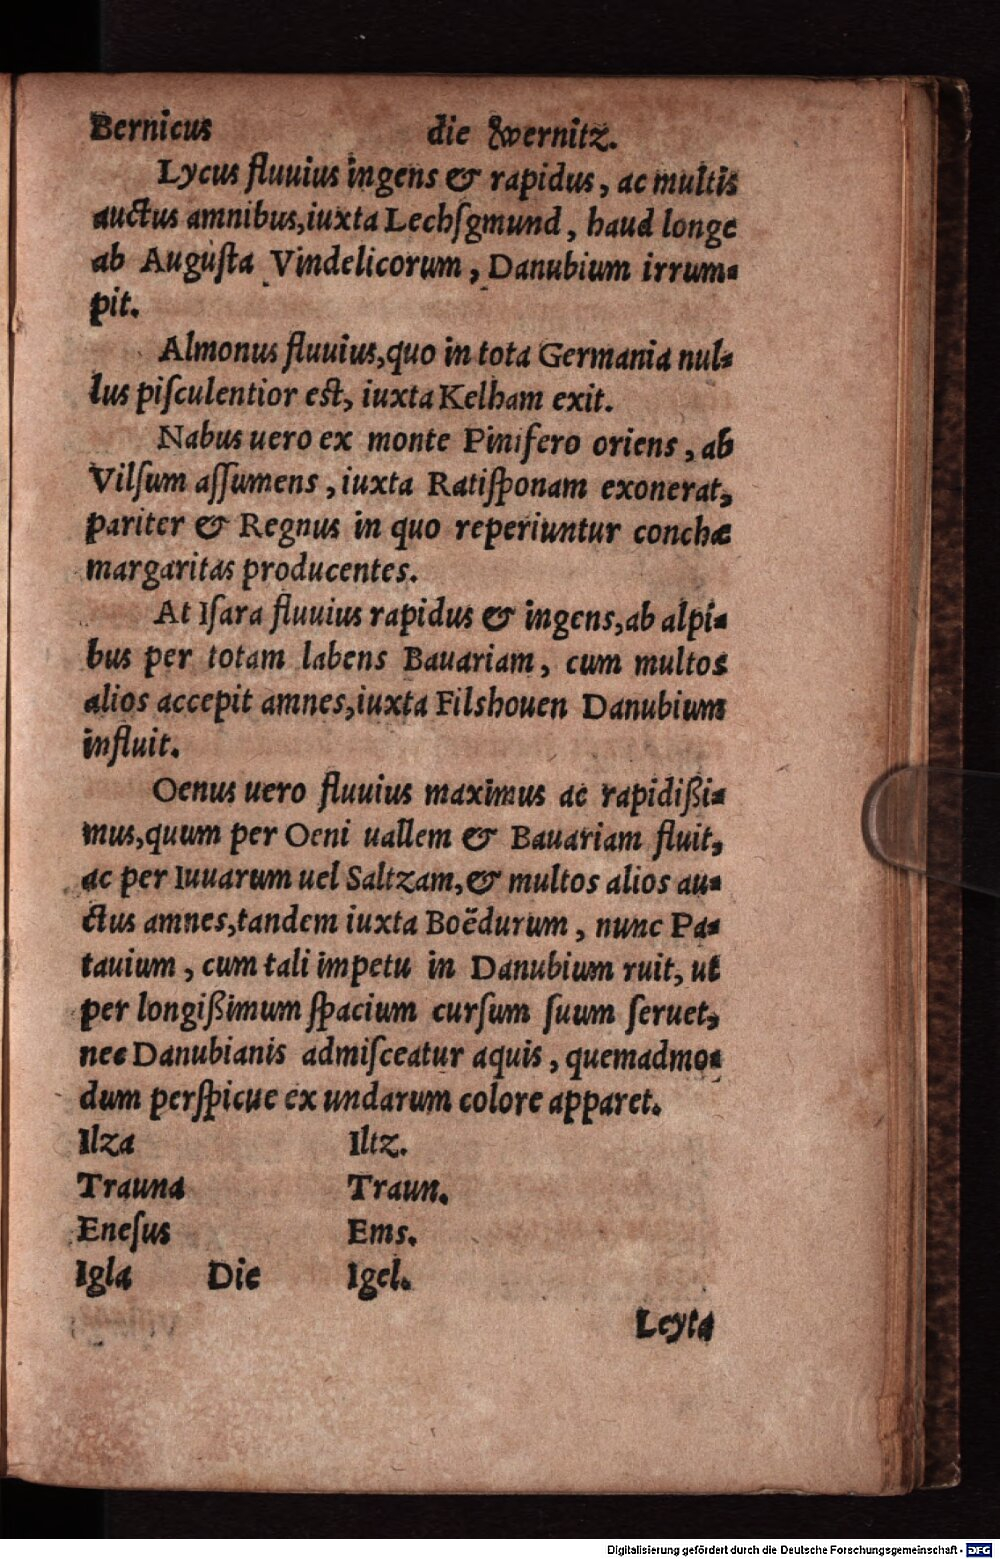 Bernicus die Wernitz.
Lycus fluuius ingens & rapidus, ac multis
auctus amnibus, iuxta Lechſgmund, haud longe
ab Auguſta Vindelicorum, Danubium irrum-
pit.
Almonus fluuius, quo in tota Germania nul-
lus piſculentior eſt, iuxta Kelham exit.
Nabus uero ex monte Pinifero oriens, ab
Vilſum aſſumens, iuxta Ratiſponam exonerat,
pariter & Regnus in quo reperiuntur conchæ
margaritas producentes.
At Iſara fluuius rapidus & ingens, ab alpi-
bus per totam labens Bauariam, cum multos
alios accepit amnes, iuxta Filshouen Danubium
influit.
Oenus uero fluuius maximus ac rapidißi-
mus, quum per Oeni uallem & Bauariam fluit,
ac per Iuuarum uel Saltzam, & multos alios au-
ctus amnes, tandem iuxta Boëdurum, nunc Pa-
tauium, cum tali impetu in Danubium ruit, ut
per longißimum ſpacium curſum ſuum ſeruet,
nec Danubianis admiſceatur aquis, quemadmo-
dum perſpicue ex undarum colore apparet.
Ilza Iltz.
Trauna Traun.
Eneſus Ems.
Igla Die Igel.
Leyta
Digitalisierung gefördert durch die Deutsche Forschungsgemeinschaft - DFG